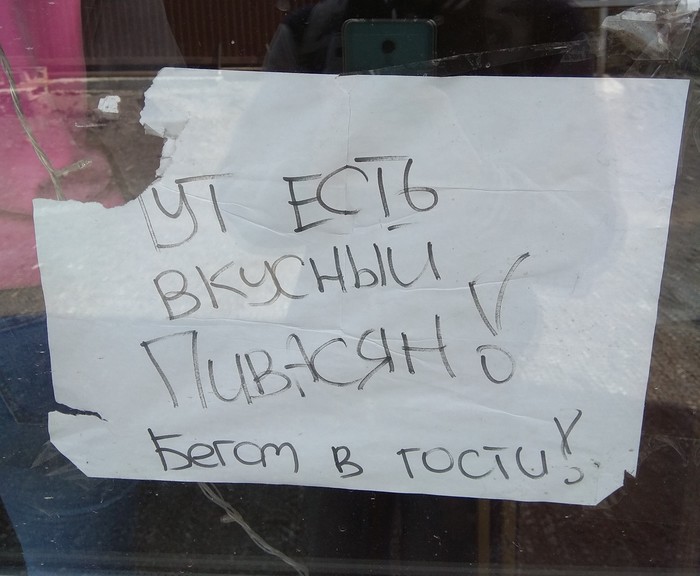 ТУТ ЕСТЬ
ВКУСНЫЙ
ПИВАСЯН!
Бегом в гости!